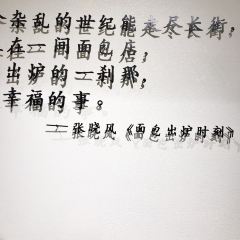 杂乱的世纪能走尽长街,
在一间面包店,
出炉的一刹那,
幸福的事。
——张晓风《面包出炉时刻》